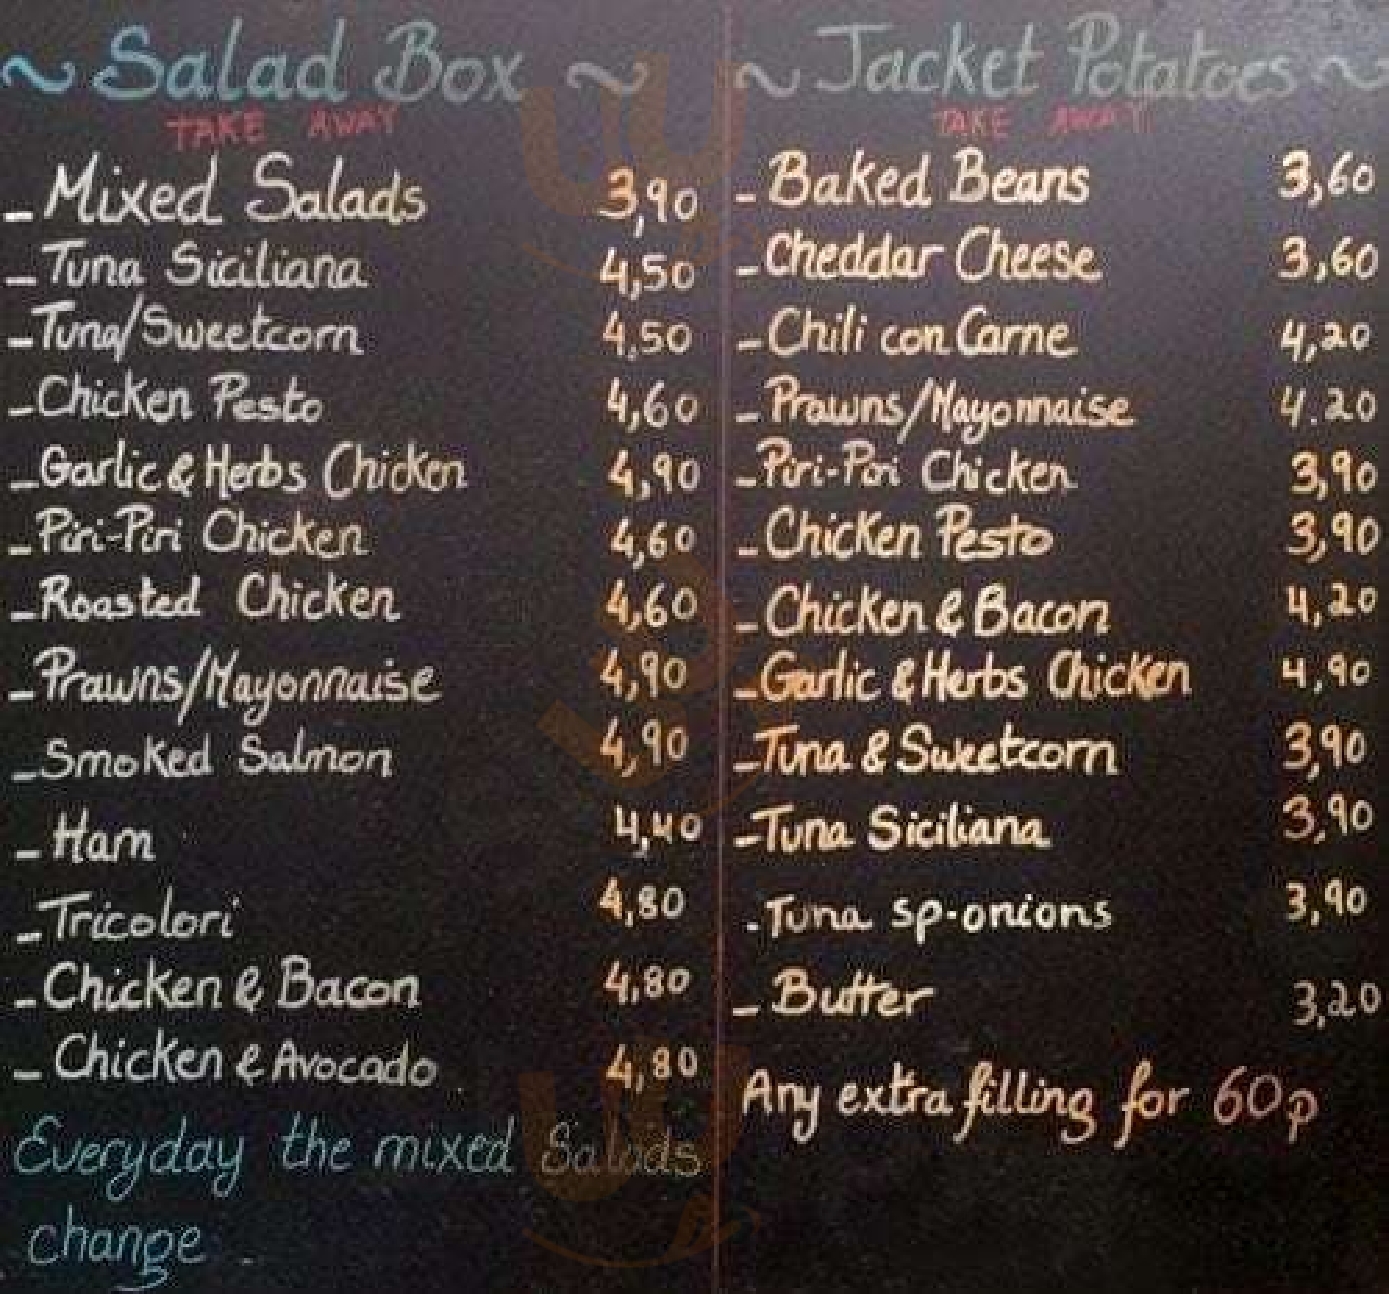 ~ Salad Box ~
TAKE AWAY
- Mixed Salads 3,90
- Tuna Siciliana 4,50
- Tuna/Sweetcorn 4.50
- Chicken Pesto 4,60
- Garlic & Herbs Chicken 4,90
- Piri-Piri Chicken 4,60
- Roasted Chicken 4,60
- Prawns/Mayonnaise 4,90
- Smoked Salmon 4,90
- Ham 4,40
- Tricolori 4,80
- Chicken & Bacon 4,80
- Chicken & Avocado. 4,80
Everyday the mixed Salads
change.
~ Jacket Potatoes ~
TAKE AWAY
- Baked Beans 3,60
- Cheddar Cheese 3,60
- Chili con Carne 4,20
- Prawns/Mayonnaise 4.20
- Piri-Piri Chicken 3,90
- Chicken Pesto 3,90
- Chicken & Bacon 4,20
- Garlic & Herbs Chicken 4,90
- Tuna & Sweetcorn 3,90
- Tuna Siciliana 3,90
. Tuna sp-onions 3,90
- Butter 3,20
Any extra filling for 60p